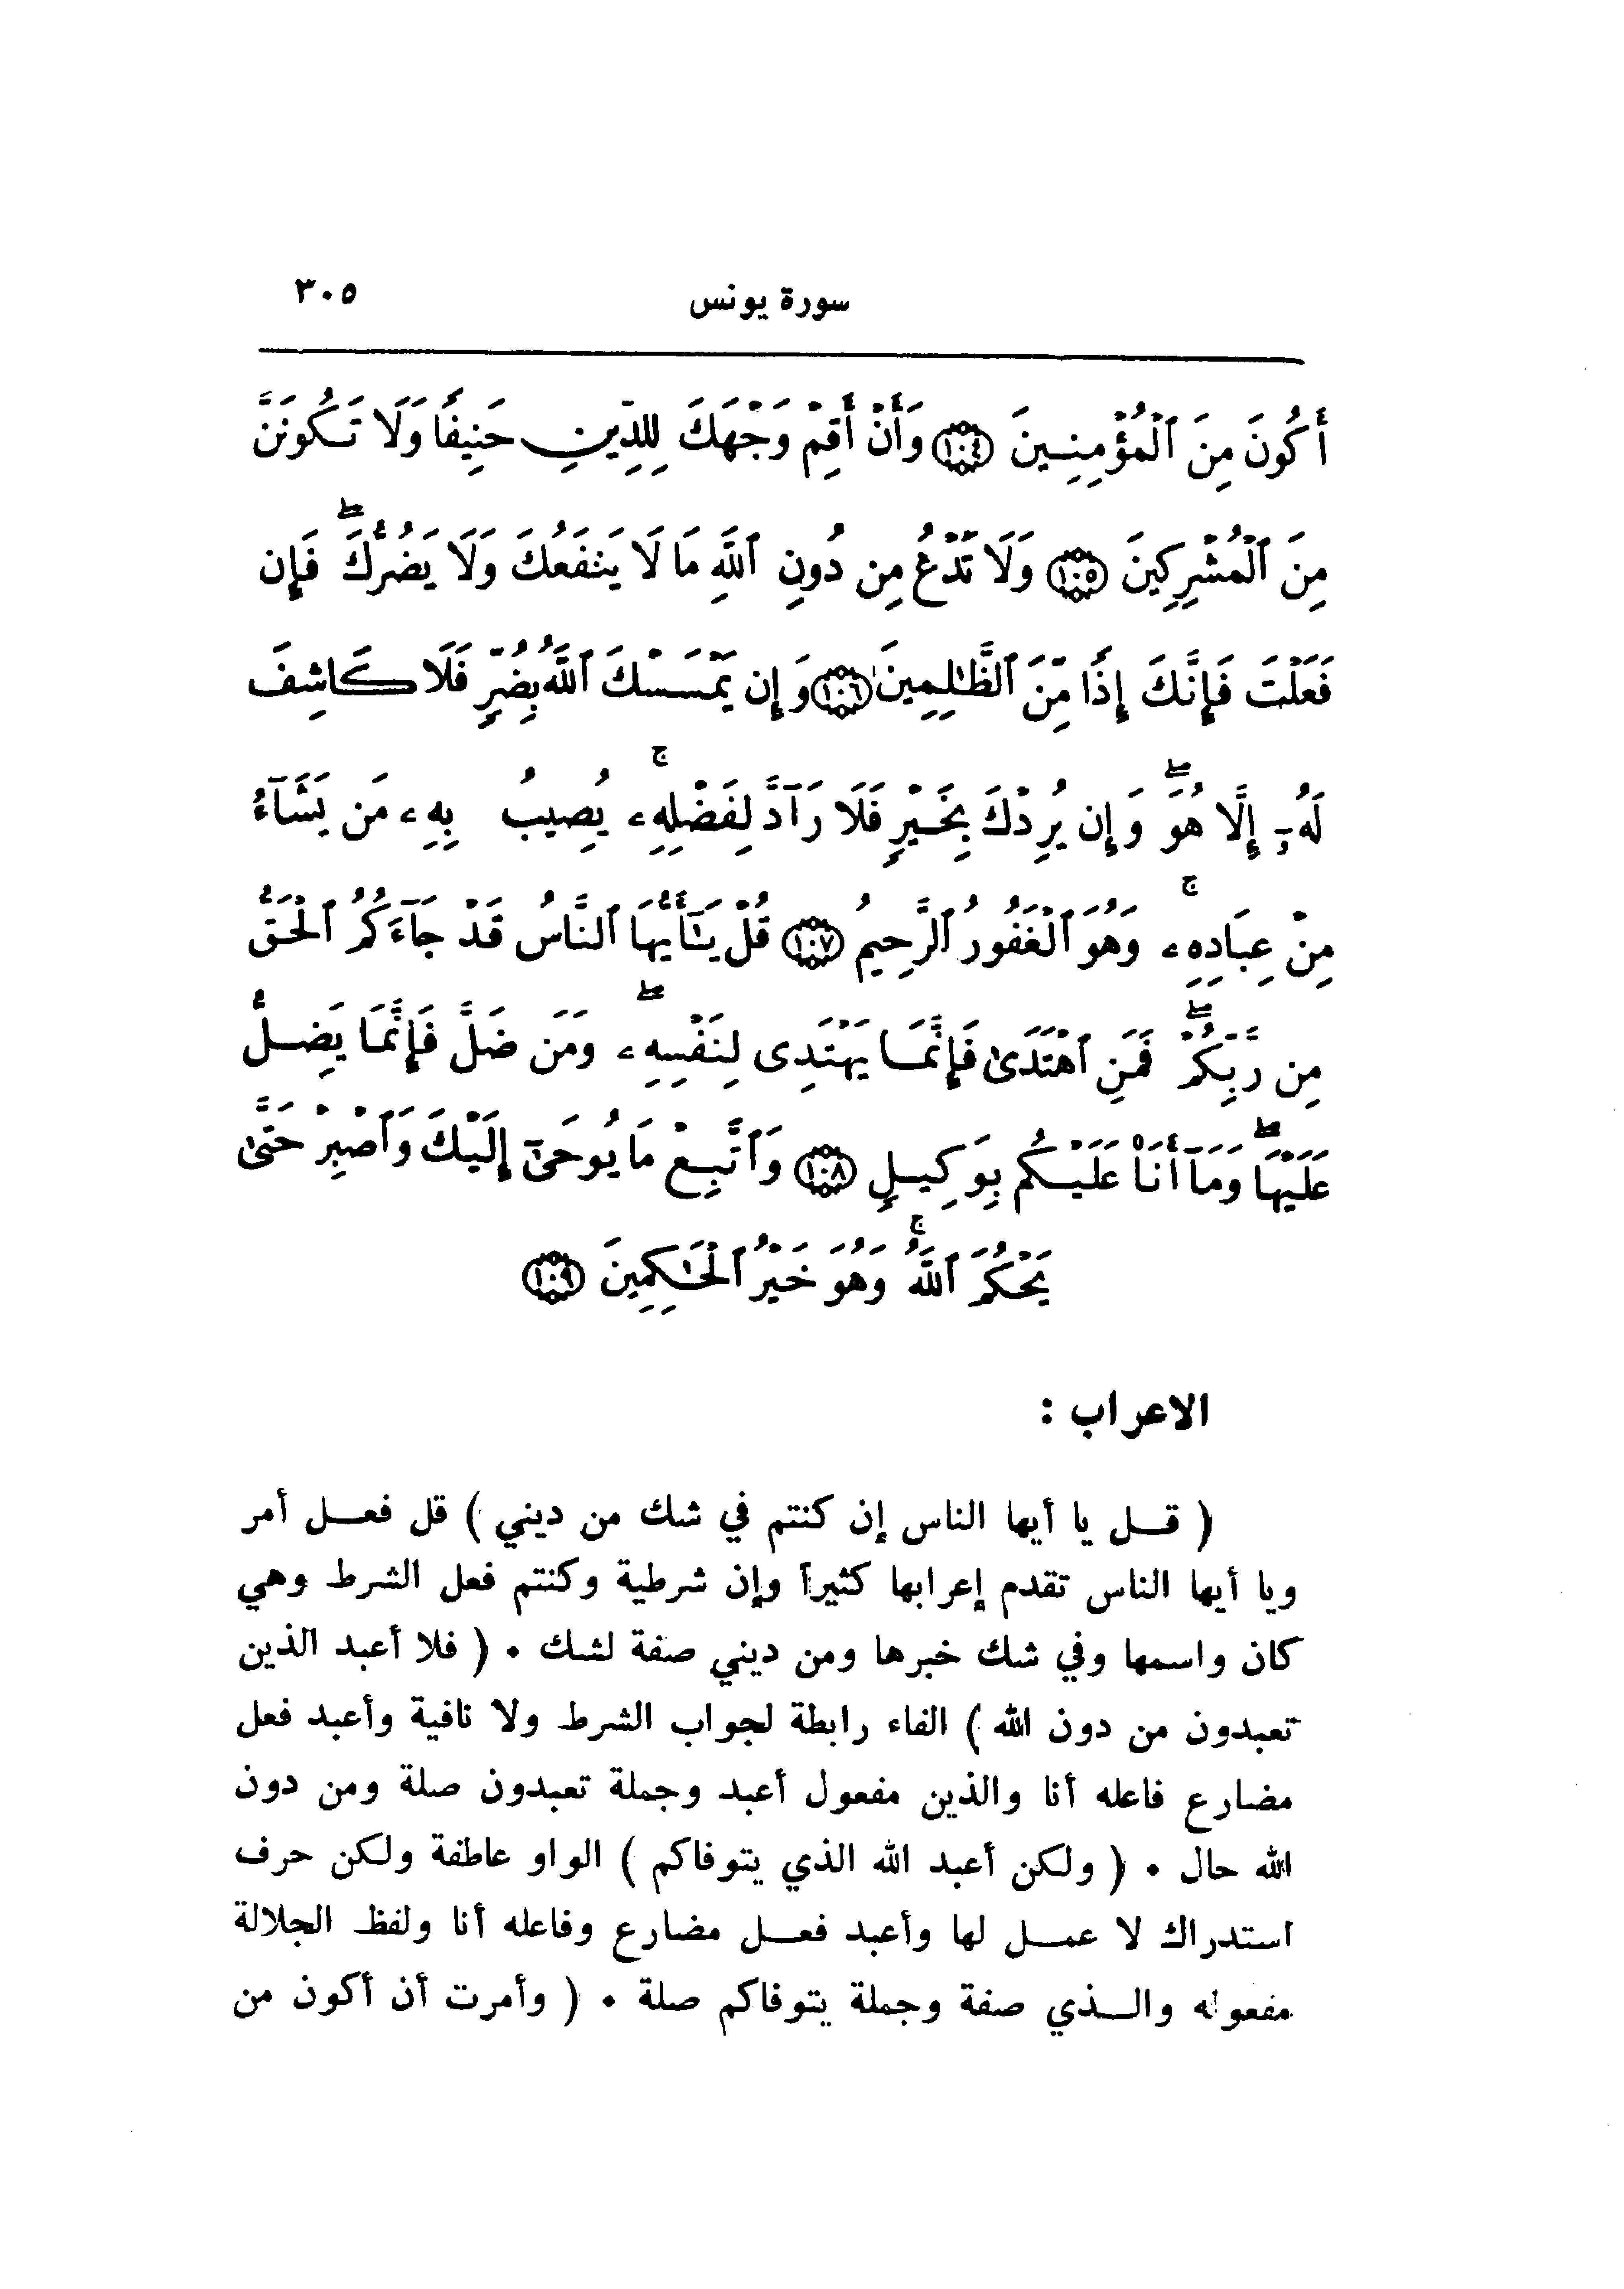 سورة يونس ٣٠٥
أَكُونَ مِنَ ٱلْمُؤْمِنِينَ ١٠٤ وَأَنْ أَقِمْ وَجْهَكَ لِلدِّينِ حَنِيفًا وَلَا تَكُونَنَّ
مِنَ ٱلْمُشْرِكِينَ ١٠٥ وَلَا تَدْعُ مِن دُونِ ٱللَّهِ مَا لَا يَنفَعُكَ وَلَا يَضُرُّكَ ۖ فَإِن
فَعَلْتَ فَإِنَّكَ إِذًا مِّنَ ٱلظَّٰلِمِينَ ١٠٦ وَإِن يَمْسَسْكَ ٱللَّهُ بِضُرٍّ فَلَا كَاشِفَ
لَهُۥٓ إِلَّا هُوَ ۖ وَإِن يُرِدْكَ بِخَيْرٍ فَلَا رَآدَّ لِفَضْلِهِۦ ۚ يُصِيبُ بِهِۦ مَن يَشَآءُ
مِنْ عِبَادِهِۦ ۚ وَهُوَ ٱلْغَفُورُ ٱلرَّحِيمُ ١٠٧ قُلْ يَٰٓأَيُّهَا ٱلنَّاسُ قَدْ جَآءَكُمُ ٱلْحَقُّ
مِن رَّبِّكُمْ ۖ فَمَنِ ٱهْتَدَىٰ فَإِنَّمَا يَهْتَدِى لِنَفْسِهِۦ ۖ وَمَن ضَلَّ فَإِنَّمَا يَضِلُّ
عَلَيْهَا ۖ وَمَآ أَنَا۠ عَلَيْكُم بِوَكِيلٍ ١٠٨ وَٱتَّبِعْ مَا يُوحَىٰٓ إِلَيْكَ وَٱصْبِرْ حَتَّىٰ
يَحْكُمَ ٱللَّهُ ۚ وَهُوَ خَيْرُ ٱلْحَٰكِمِينَ ١٠٩
الاعراب :
( قـل يا أيها الناس إن كنتم في شك من ديني ) قل فعـل أمر
ويا أيها الناس تقدم إعرابها كثيراً وإن شرطية وكنتم فعل الشرط وهي
كان واسمها وفي شك خبرها ومن ديني صفة لشك . ( فلا أعبد الذين
تعبدون من دون الله ) الفاء رابطة لجواب الشرط ولا نافية وأعبد فعل
مضارع فاعله أنا والذين مفعول أعبد وجملة تعبدون صلة ومن دون
الله حال . ( ولكن أعبد الله الذي يتوفاكم ) الواو عاطفة ولكن حرف
استدراك لا عمـل لها وأعبد فعـل مضارع وفاعله أنا ولفظ الجلالة
مفعوله والـذي صفة وجملة يتوفاكم صلة . ( وأمرت أن أكون من